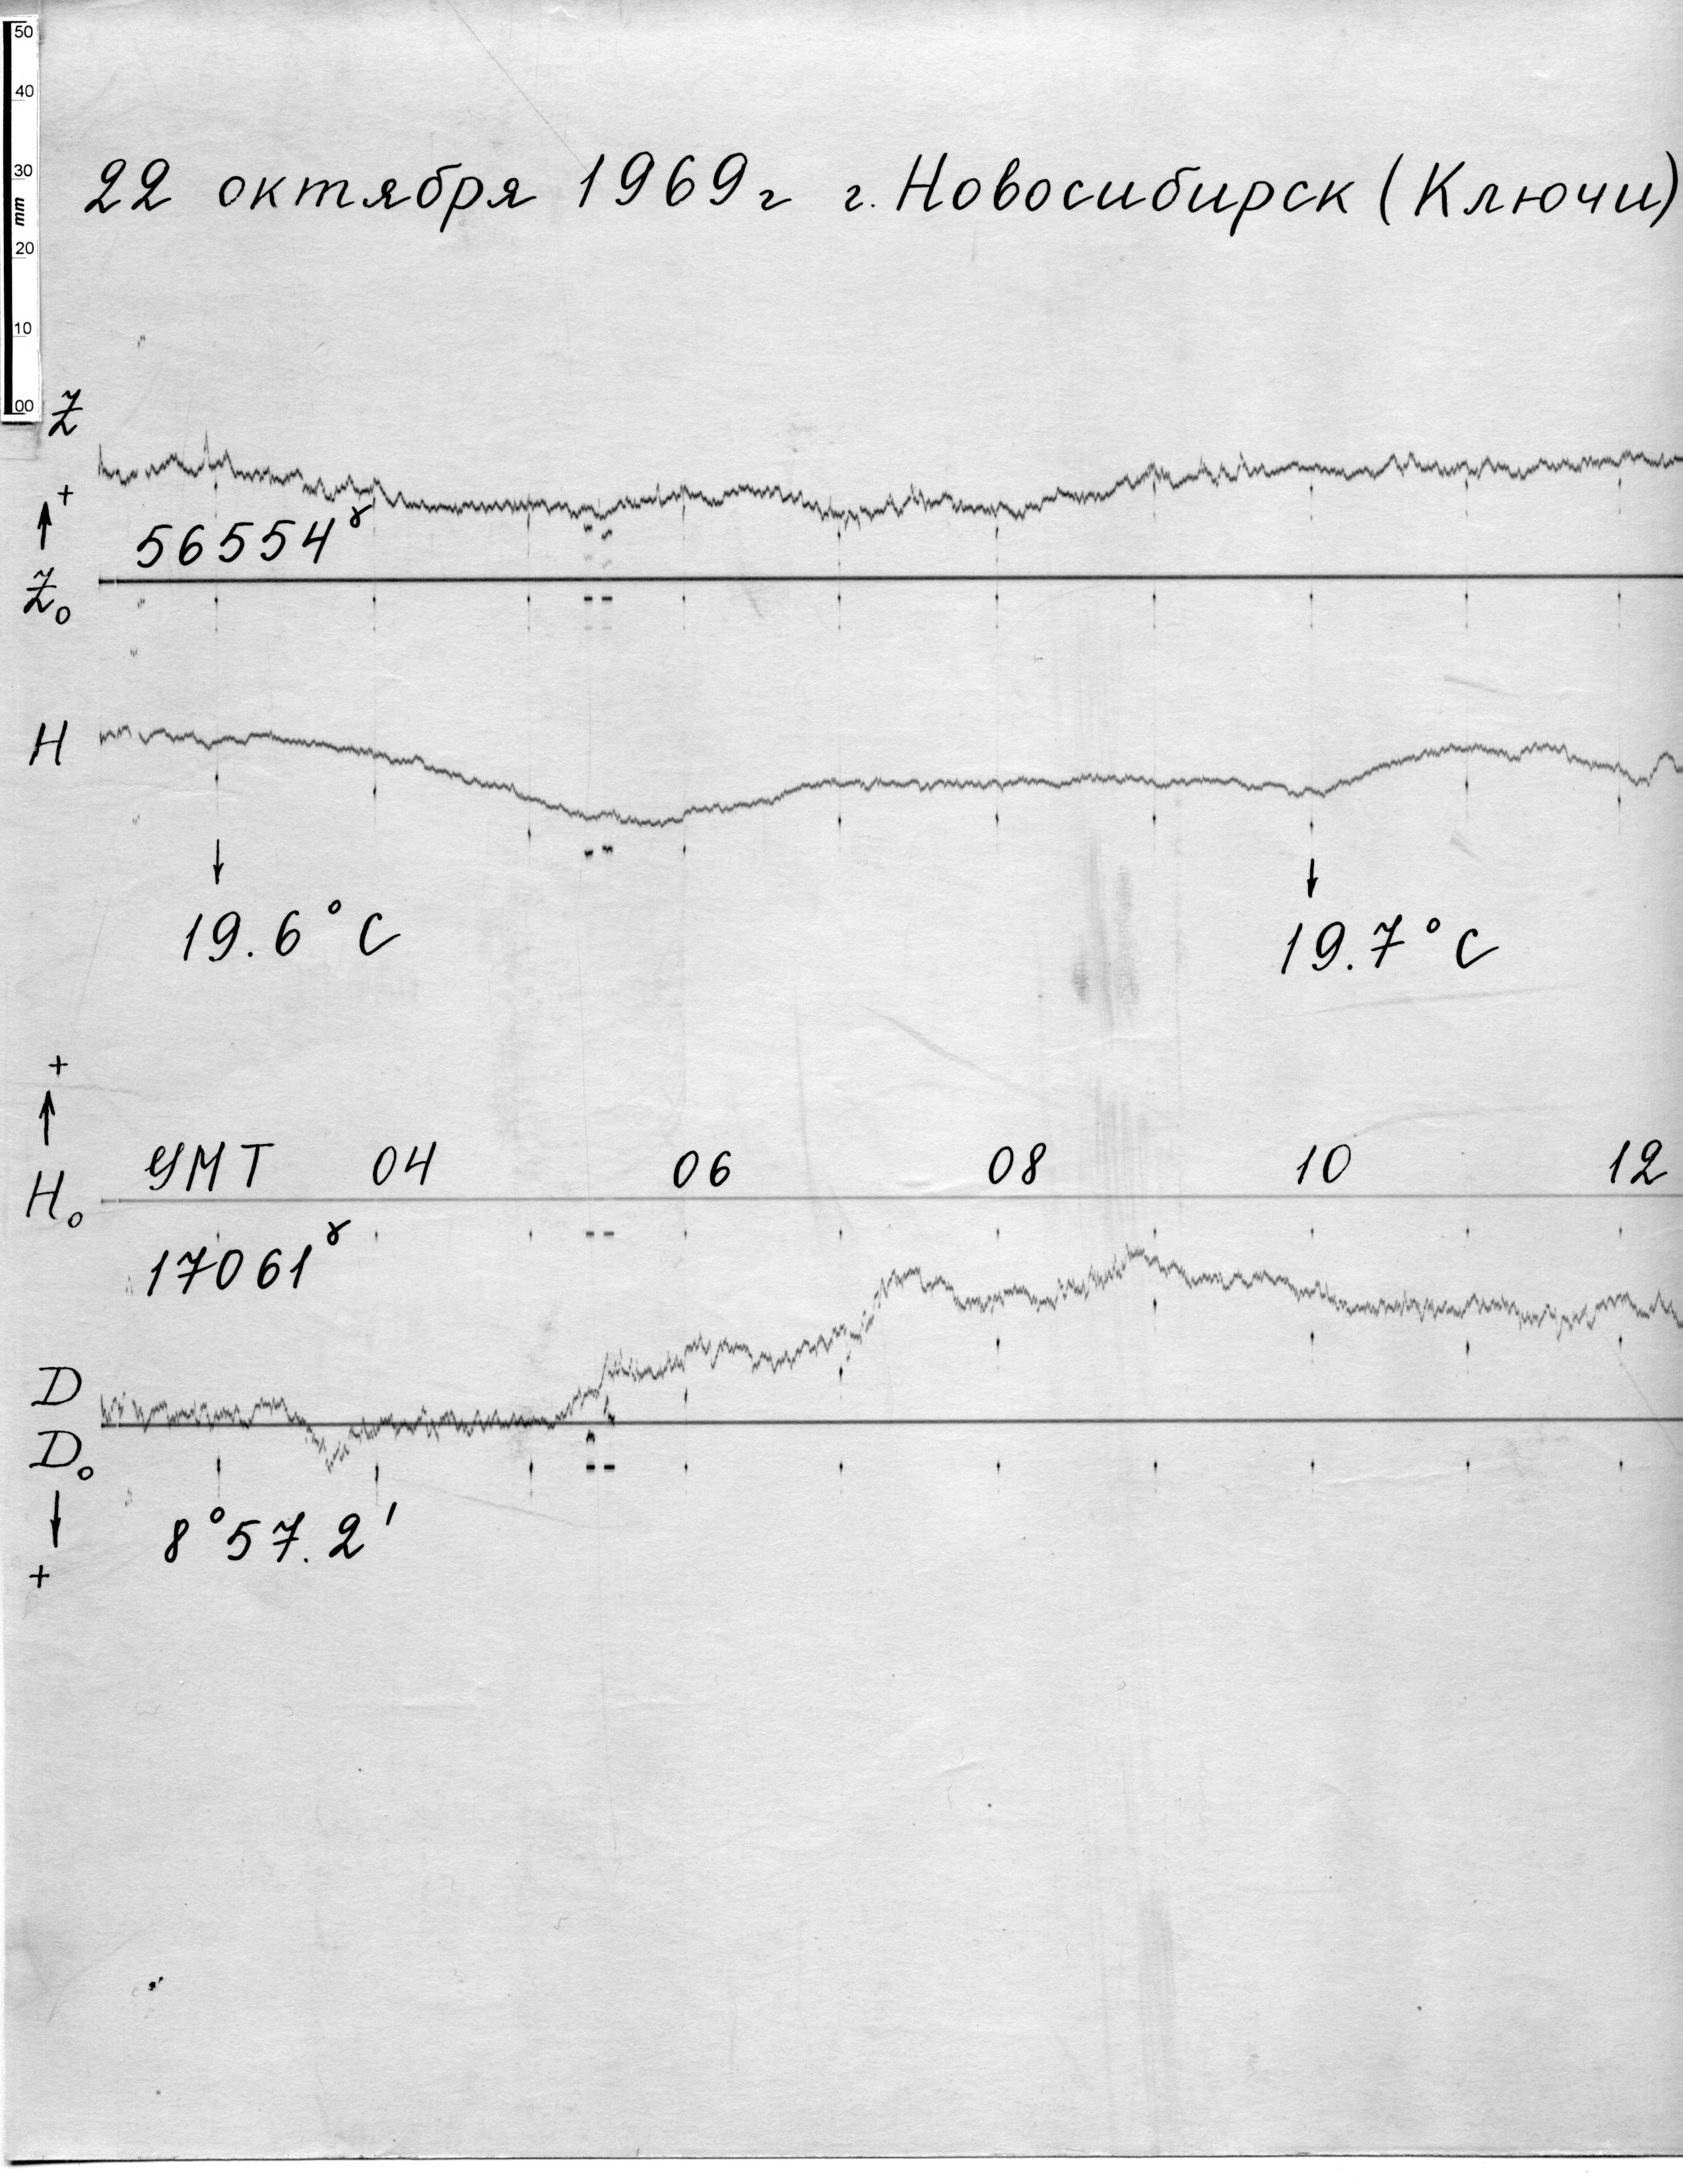 50
40
30
mm
20
10
00
22 октября 1969г г. Новосибирск (Ключи)
Z
+
56554γ
Z₀
H
19.6°C
19.7°C
+
УМТ 04 06 08 10 12
H₀
17061γ
D
D₀
8°57.2'
+